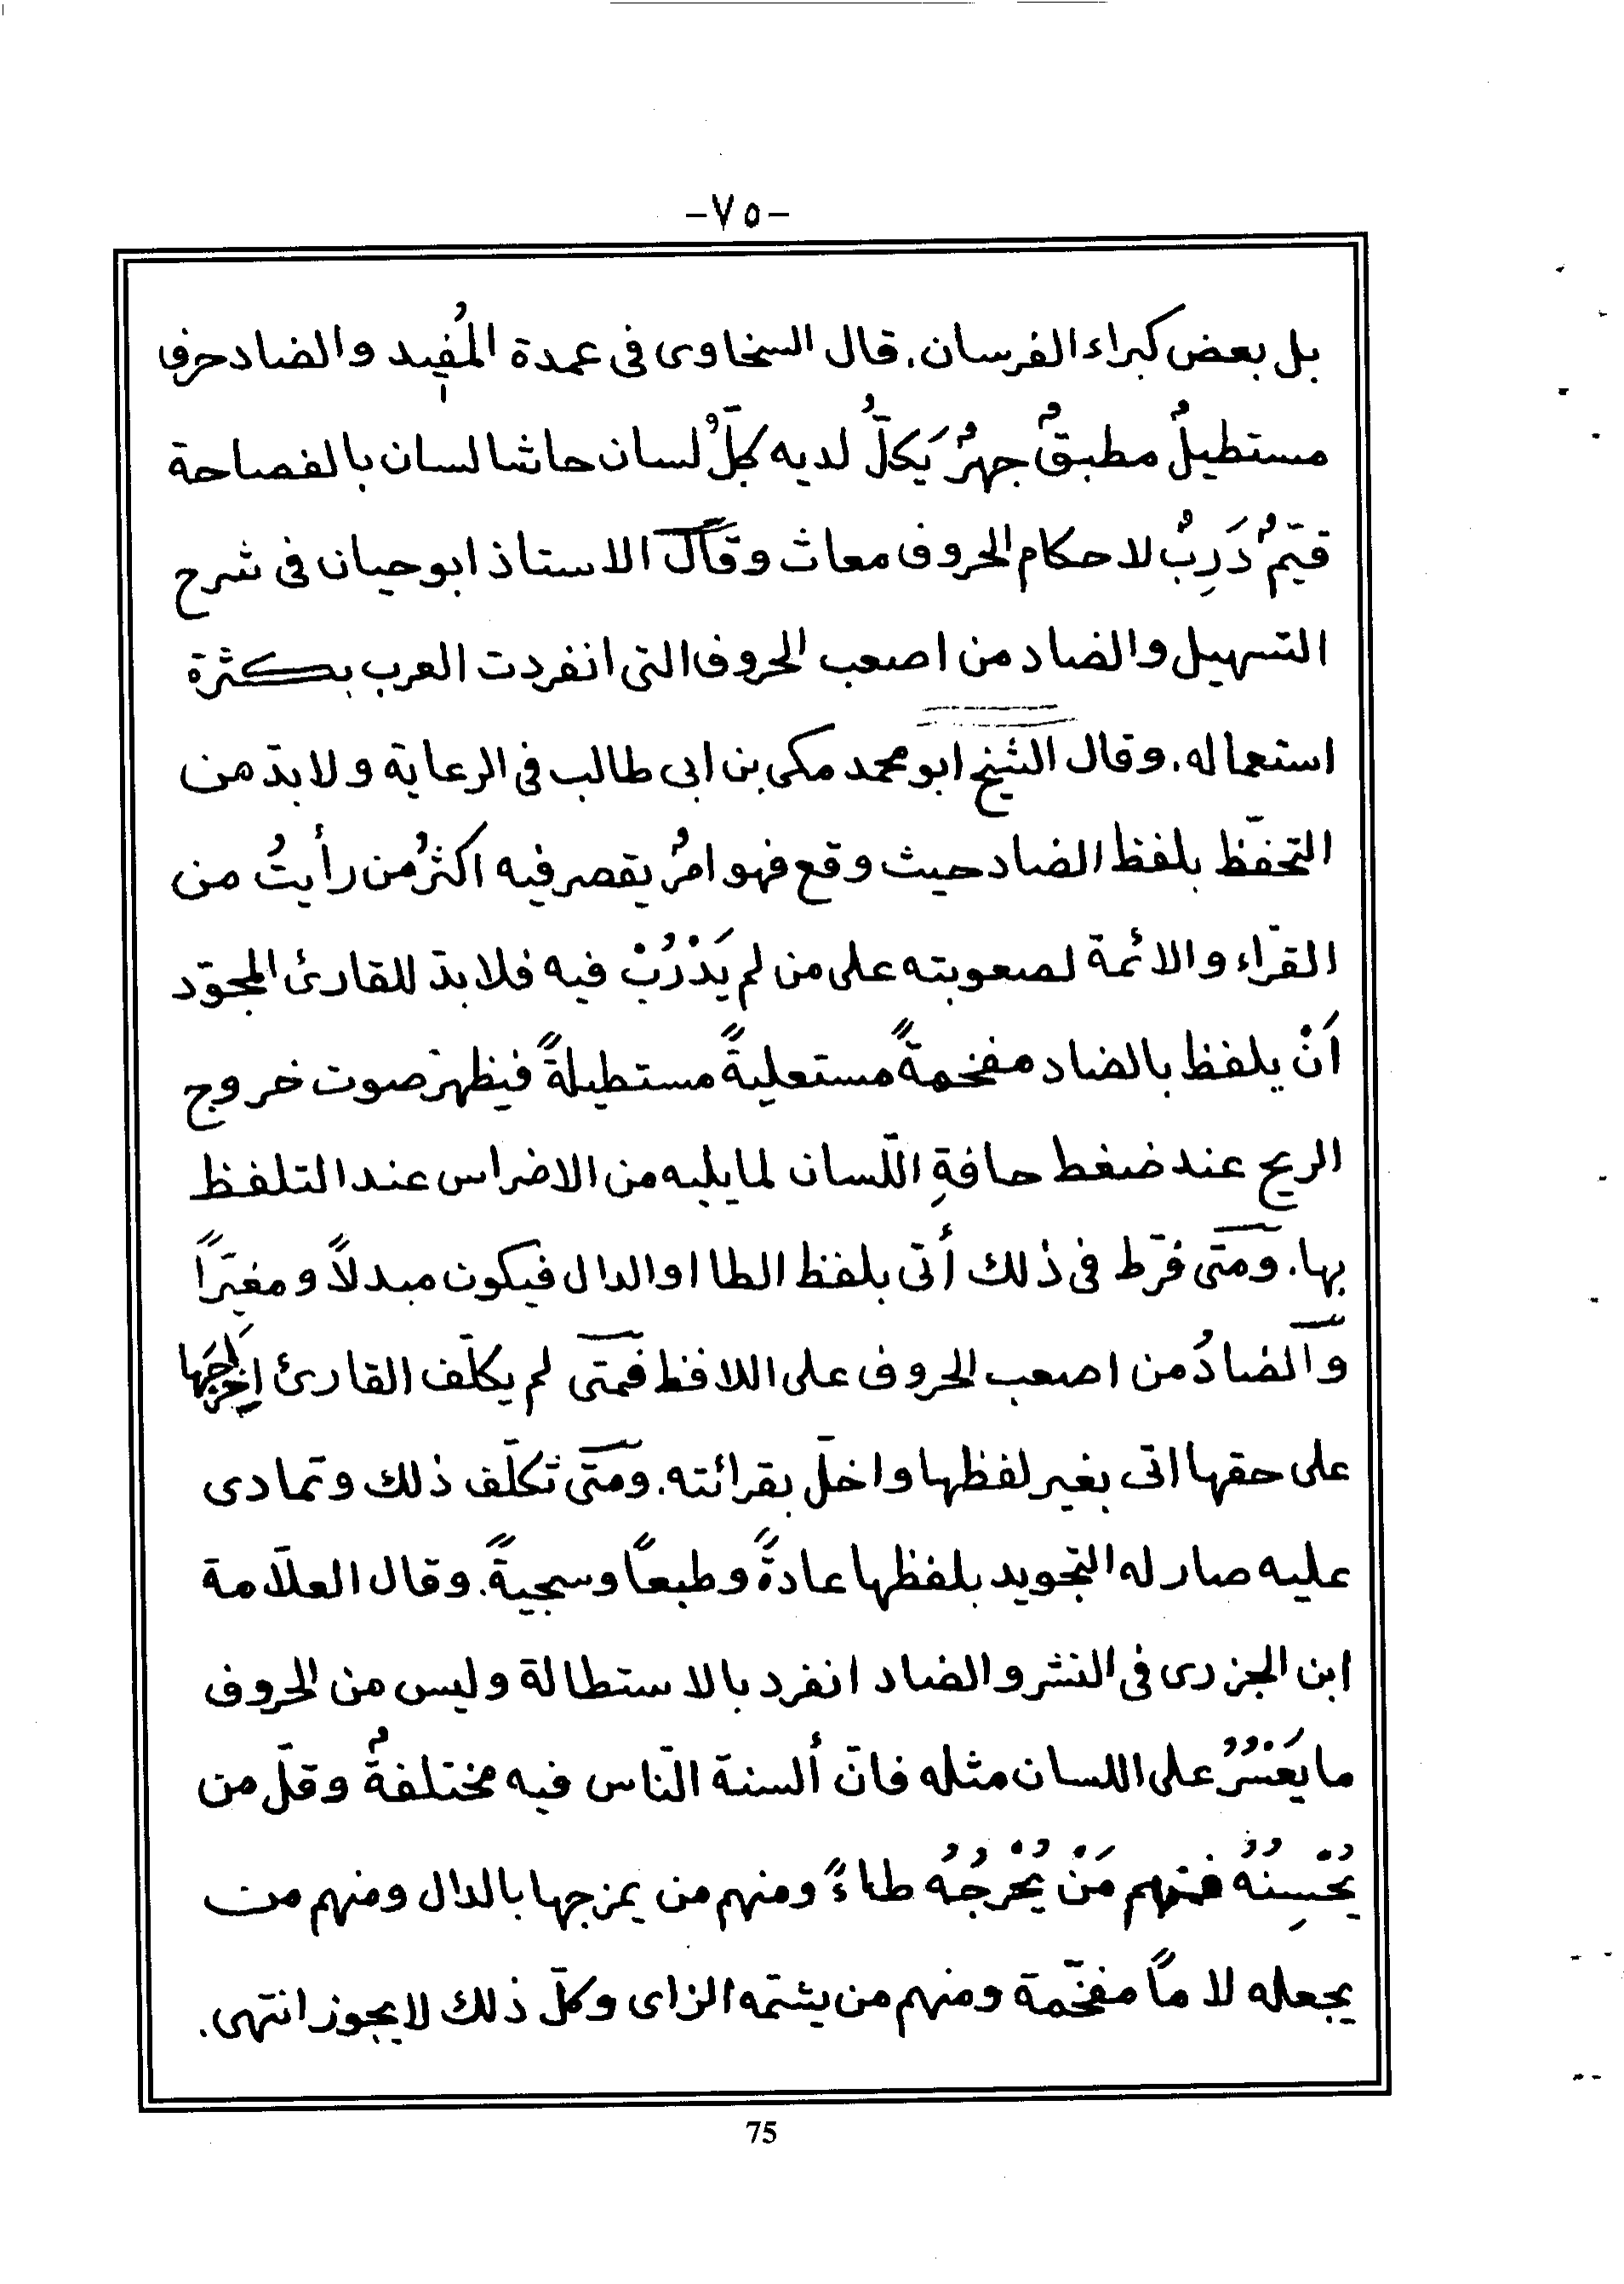 -٧٥-
بل بعض كبراء الفرسان. قال السخاوى فى عمدة المُفيد والضاد حرف
مستطيلٌ مطبقٌ جهرٌ يَكلُّ لديه كلُّ لسان حاشا لسان بالفصاحة
قيّمٌ دَرِبٌ لاحكام الحروف معاث وقال الاستاذ ابوحيان فى شرح
التسهيل والضاد من اصعب الحروف التى انفردت العرب بكثرة
استعماله. وقال الشيخ ابومحمد مكى بن ابى طالب فى الرعاية ولابدّ من
التحفّظ بلفظ الضاد حيث وقع فهو امرٌ يقصر فيه اكثرُ من رأيتُ من
القرّاء والائمة لصعوبته على من لم يَدْرُبْ فيه فلابدّ للقارئ المجوّد
اَنْ يلفظ بالضاد مفخمةً مستعليةً مستطيلةً فيظهر صوت خروج
الريح عند ضغط حافةِ اللّسان لمايليه من الاضراس عند التلفظ
بها. ومتى فرّط فى ذلك أتى بلفظ الطا اوالدال فيكون مبدلاً ومغيّراً
والضادُ من اصعب الحروف على اللافظ فمتى لم يكلّف القارئ اِخراجَها
على حقها اتى بغير لفظها واخلّ بقرائته. ومتى تكلّف ذلك وتمادى
عليه صار له التجويد بلفظها عادةً وطبعاً وسجيةً. وقال العلاّمة
ابن الجزرى فى النشر والضاد انفرد بالاستطالة وليس من الحروف
مايَعْسُرُ على اللسان مثله فانّ ألسنة النّاس فيه مختلفةٌ وقلّ من
يُحْسِنُهُ فمنهم مَنْ يُخْرِجُهُ طاءً ومنهم من يمزجها بالدال ومنهم من
يجعله لاماً مفخّمة ومنهم من يشمّه الزاى وكلّ ذلك لايجوز انتهى.
75